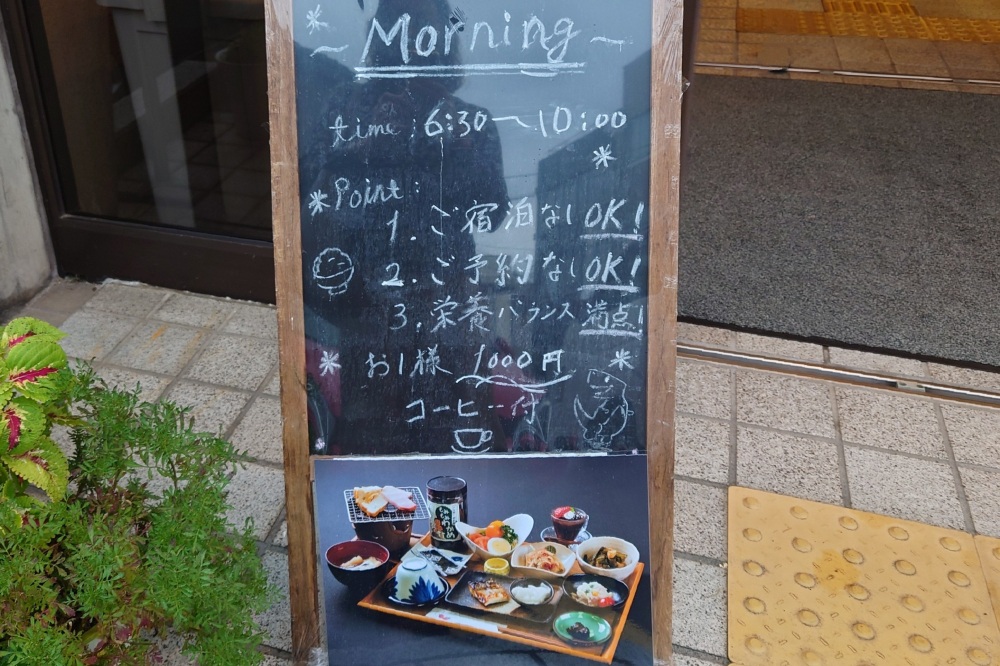 ~ Morning ~
time: 6:30〜10:00
*Point:
1. ご宿泊なしOK!
2. ご予約なしOK!
3. 栄養バランス満点!
* お1人様 1000円 *
コーヒー付